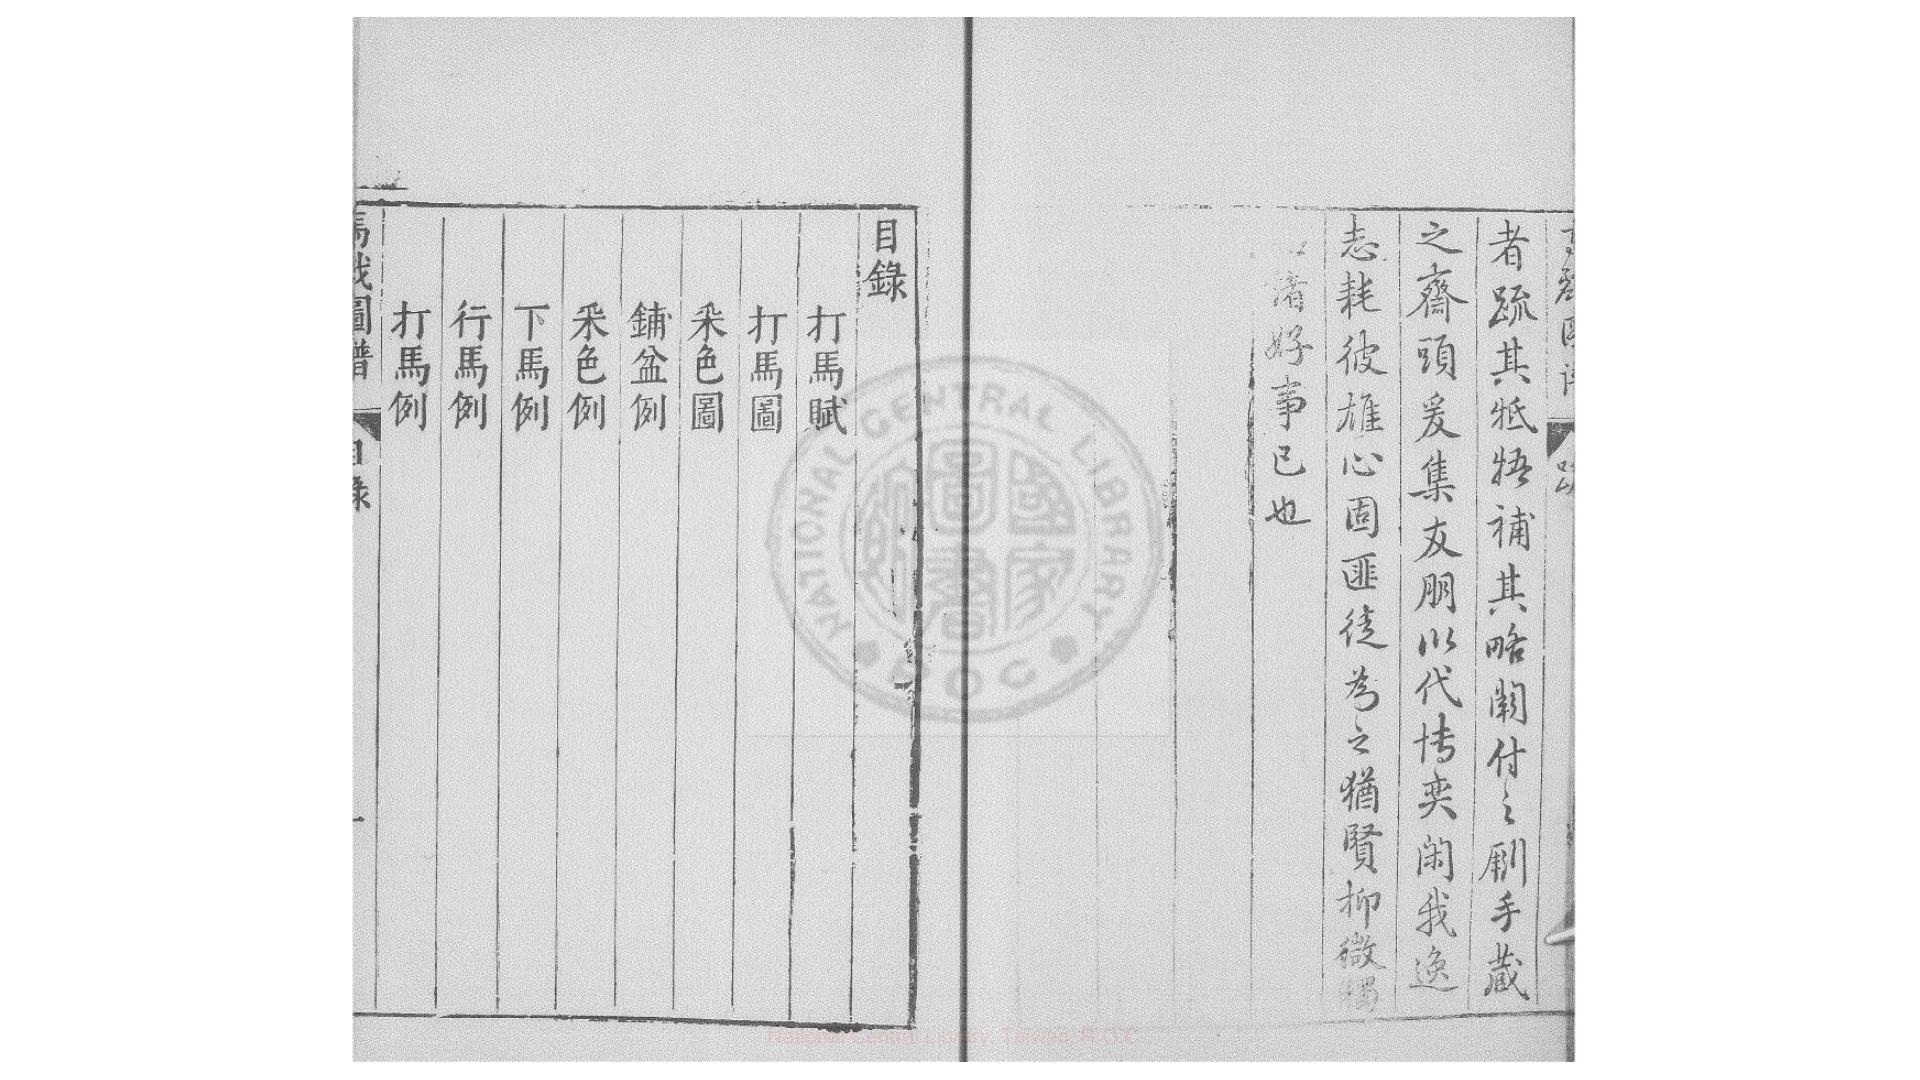 者疏其牴牾補其略闕付之劂手藏
之齋頭爰集友朋以代博奕閑我逸
志耗彼雄心固匪徒為之猶賢抑微獨
諸好事已也
目錄
打馬賦
打馬圖
采色圖
鋪盆例
采色例
下馬例
行馬例
打馬例
馬戲圖譜
目錄
一
NATIONAL CENTRAL LIBRARY
ROC
國家圖書館
National Central Library, Taiwan, R.O.C